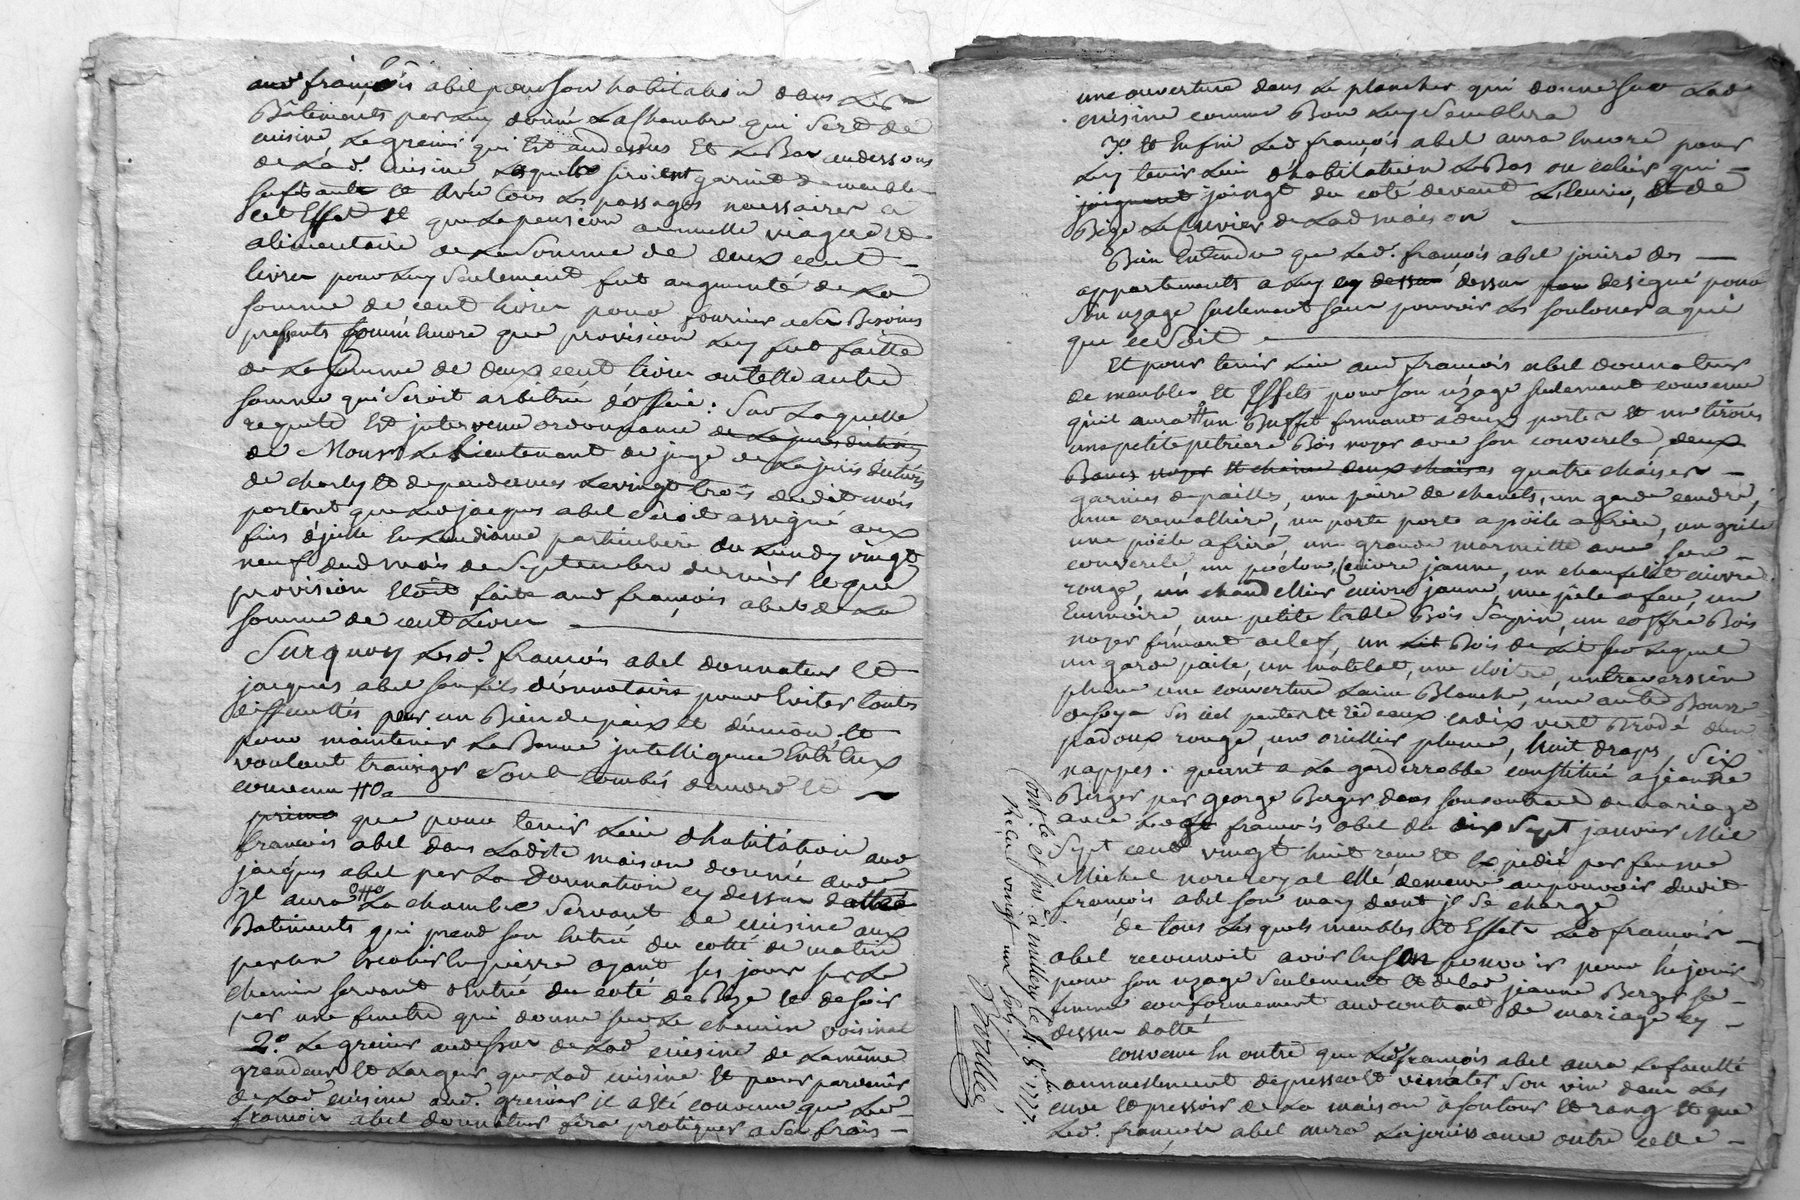 aud françois abel pour son habitation dans lesd
Bâtiments par luy donné la chambre qui sert de
cuisine, le grenier qui est audessus et le Bas audessous
de lad. cuisine, lesquels seroient garnit de meubles
suffisants et avec tous les passages necessaires a
cet Effet et que la pension annuelle viagere et
alimentaire de la somme de deux cent
livres pour luy seulement fut augmenté de la
somme de cent livres pour fournir a ses Besoins
pressents comme encore que provision luy fut faitte
de la somme de deux cent livres ou telle autre
somme qui seroit arbitrée d'office : sur laquelle
requete Est intervenu ordonnance de la jurisdiction
de Monsr le Lieutenant de juge de la jurisdiction
de charly et dependances le vingt trois dudit mois
portant que led jacques abel seroit assigné aux
fins d'icelle En l'audiance particuliere du Lundy vingt
neuf dud mois de septembre dernier et que
provision Etoit faite aud françois abel de la
somme de cent Livres
Surquoy lesd. françois abel donnateur et
jacques abel son fils donnataire pour Eviter toutes
difficultés pour un Bien de paix et d'union et
pour maintenir la Bonne intelligence Entr'eux
voulant transiger sont tombés d'accord et
convenu
primo que pour tenir Lieu d'habitation aud
francois abel dans Ladite maison donnée aud
jacques abel par La Donnation cy dessus dattée
il aura 1o La chambre servant de cuisine aux
Batiments qui prend son Entrée du cotté de matin
par un Escalier En pierre ayant ses jours sur le
chemin servant d'Entrée du coté de Bize et de soir
par une fenetre qui donne sur le chemin voisinal
2.o Le grenier audessus de lad cuisine de la même
grandeur et Largeur que lad cuisine Et pour parvenir
de lad cuisine aud. grenier il a Eté convenu que led
francois abel donnateur fera pratiquer a ses frais
une ouverture dans le plancher qui donne sur lad
cuisine comme Bon luy semblera
3o. Et Enfin led françois abel aura Encore pour
luy tenir Lieu d'habitation le Bas ou celier qui
joignent joingt du coté devent l'Ecurie, et de
Bize le Cuvier de lad maison
Bien Entendu que led. françois abel jouira des
appartements a luy cy dessus dessus designé pour
son uzage seulement sans pouvoir les soulouer a qui
que ce soit
Et pour tenir Lieu aud françois abel donnateur
de meubles Et Effets pour son uzage seulement convenu
qu'il aura 1o un Buffet fermant a deux portes et un tiroir
une petite petriere Bois noyer avec son couvercle, deux
Bancs noyer et chaine deux chaises quatre chaises
garnies de paille, une paire de chenets, un garde cendre,
une cremalliere, un porte poele a frire, un grile
une poile a frire, une grande marmitte avec son
couvercle, un poelon, cuivre jaune, un chaufelit cuivre
rouge, un chandellier cuivre jaune, une pele a feu, un
Enmoire, une petite table Bois sapin, un coffre Bois
noyer fermant a clef, un lit Bois de lit sur lequel
un garde paille, un matelat, une un traverssin
plume une couverture Laine Blanche, une autre Bourre
de soye ses ciel pentes et rideaux cadix vert Brodé d'un
padoux rouge, un oreillier plume, huit draps, Six
nappes. quant a la garderrobbe constitué a jeanne
Berger par george Berger dans son contrat de mariage
avec led françois abel du dix sept janvier Mil
Sept cent vingt huit reçu et Expedié par feu me
Michel nore royal Elle demeure au pouvoir dudit
françois abel son mary dont il se charge
De tous Les quels meubles Et Effets Led francois
abel reconnoit avoir En son pouvoir pour En jouir
pour son uzage seulement et de lad jeanne Berger sa
femme conformement aud contrat de mariage cy
dessus datté
convenu En outre que led françois abel aura la faculté
annuellement de presser Et son vin dans Les
cuve Et pressoir de la maison a son tour Et rang Et que
led. françois abel aura La jouissance outre celle
Contrlé et Insé à millery le 4. 8bre 1777.
Reçu vingt un sols